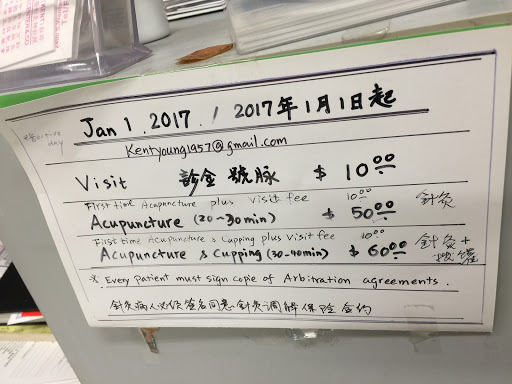 Jan 1. 2017. / 2017年1月1日起
*effective day
Kentyoung1957@gmail.com
Visit 診金 號脉 $ 10.00
First time Acupuncture plus Visit fee 10.00
Acupuncture (20~30min) $ 50.00 針灸
First time Acupuncture & Cupping plus Visit fee 10.00
Acupuncture & Cupping (30-40min) $ 60.00 針灸+
拔罐
* Every patient must sign copie of Arbitration agreements.
針灸病人必須签名同意針灸调解保险合约